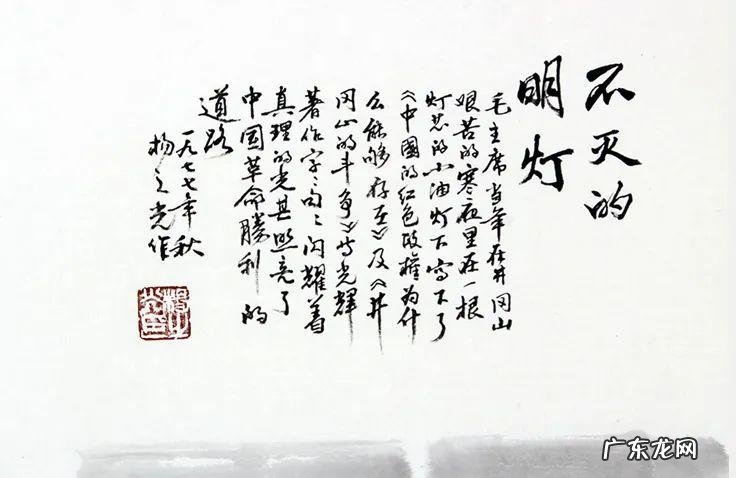 不灭的
明灯
毛主席当年在井冈山
艰苦的寒夜里在一根
灯芯的小油灯下写下了
《中國的红色政權为什
么能够存在》及《井
冈山的斗争》等光輝
著作字々句々闪耀着
真理的光照亮了
中国革命勝利的
道路
一九七七年秋
杨之光作
广东龙网